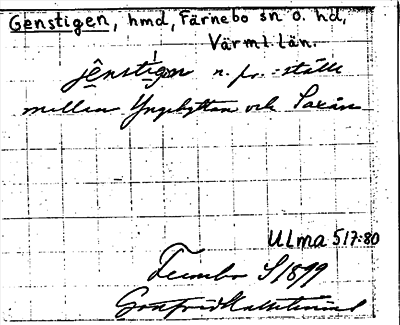 Genstigen, hmd, Färnebo sn o. hd,
Värml. län.
jênstigen n. pr. =ställe
mellan Yngshyttan och Saxån
ULma 517:80
Fernebo S 1899
Gottfrid Kallstenius